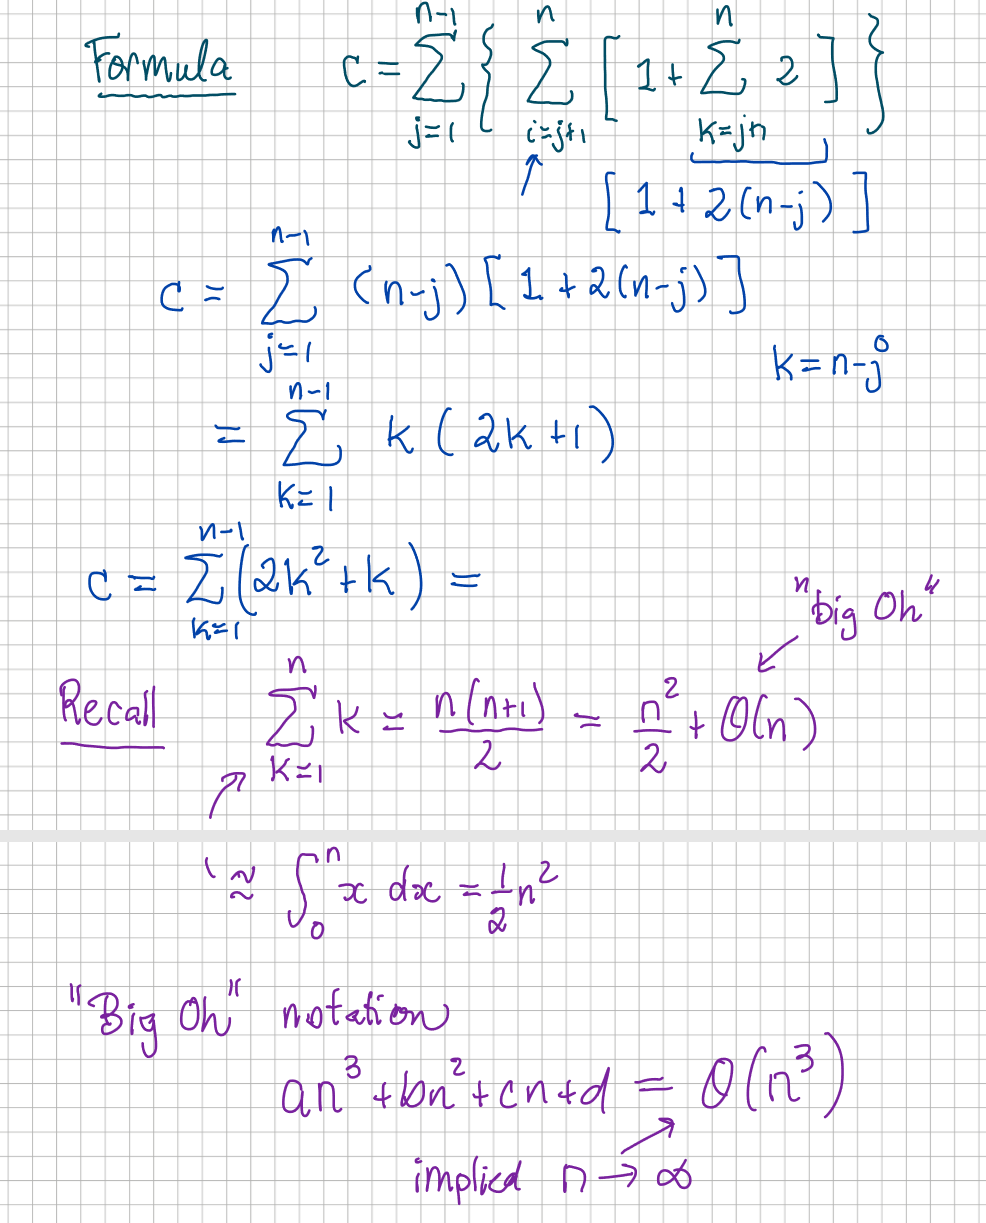 Formula C = \sum_{j=1}^{n-1} \{ \sum_{i=j+1}^{n} [ 1 + \sum_{k=jn}^{n} 2 ] \}
[ 1 + 2(n-j) ]
C = \sum_{j=1}^{n-1} (n-j) [ 1 + 2(n-j) ]
k = n-j
= \sum_{k=1}^{n-1} k ( 2k +1 )
C = \sum_{k=1}^{n-1} ( 2k^2 + k ) =
"big Oh"
Recall \sum_{k=1}^{n} k = \frac{n(n+1)}{2} = \frac{n^2}{2} + O(n)
≈ \int_0^n x dx = \frac{1}{2} n^2
"Big Oh" notation
an^3 + bn^2 + cn + d = O(n^3)
implied n → ∞